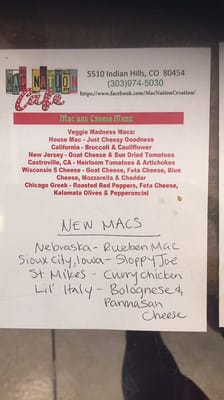 MAC NATION
Cafe
5510 Indian Hills, CO 80454
(303)974-5030
https://www.facebook.com/MacNationCreation/
Mac and Cheese Menu
Veggie Madness Macs:
House Mac - Just Cheesy Goodness
California - Broccoli & Cauliflower
New Jersey - Goat Cheese & Sun Dried Tomatoes
Castroville, CA - Heirloom Tomatoes & Artichokes
Wisconsin 5 Cheese - Goat Cheese, Feta Cheese, Blue
Cheese, Mozzarella & Cheddar
Chicago Greek - Roasted Red Peppers, Feta Cheese,
Kalamate Olives & Pepperoncini
NEW MACS
Nebraska - Rueben Mac
Sioux City, Iowa - Sloppy Joe
St Mikes - Curry Chicken
Lil' Italy - Bolognese &
Parmasan
Cheese